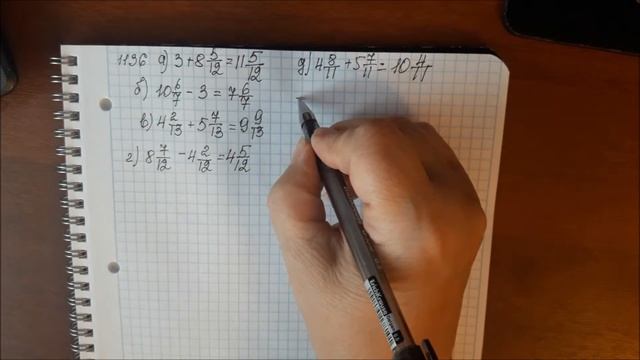 1136 а) 3 + 8 5/12 = 11 5/12
б) 10 6/7 - 3 = 7 6/7
в) 4 2/13 + 5 7/13 = 9 9/13
г) 8 7/12 - 4 2/12 = 4 5/12
д) 4 8/11 + 5 7/11 = 10 4/11